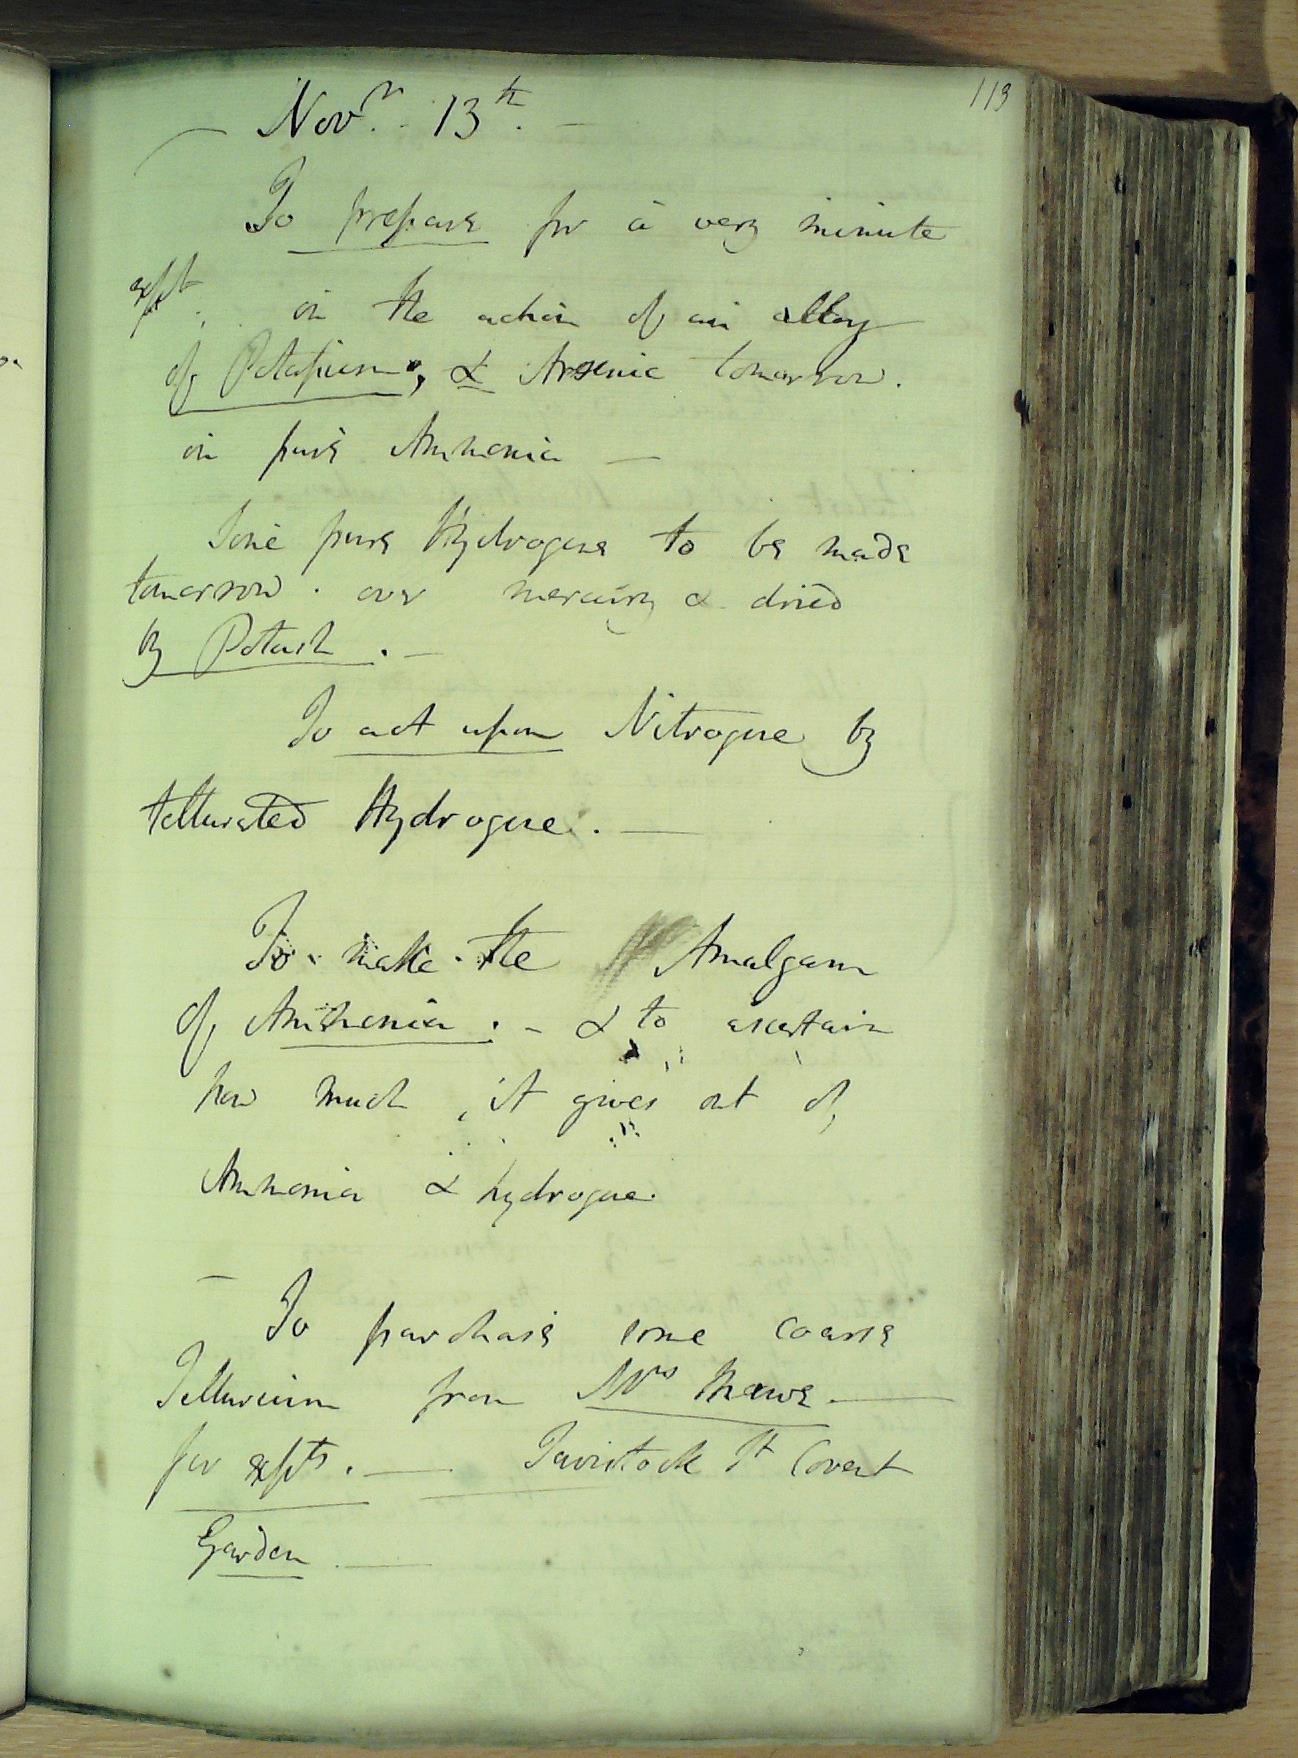 113
Novr. 13th. -
To prepare for a very minute
expt. on the action of an alloy
of Potassium, & Arsenic tomorrow.
in pure Ammonia -
Some pure Hydrogene to be made
tomorrow. over mercury & dried
by Potash. -
To act upon Nitrogene by
tellurated Hydrogene. -
To make the Amalgam
of Ammonia. - & to ascertain
how much it gives out of
Ammonia & hydrogene.
- To purchase some coarse
Tellurium from Mrs Mawe -
for expts. - Tavistock St Covent
Garden -